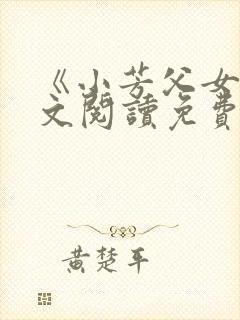 《小芳父女
文閱讀免費
黃楚平